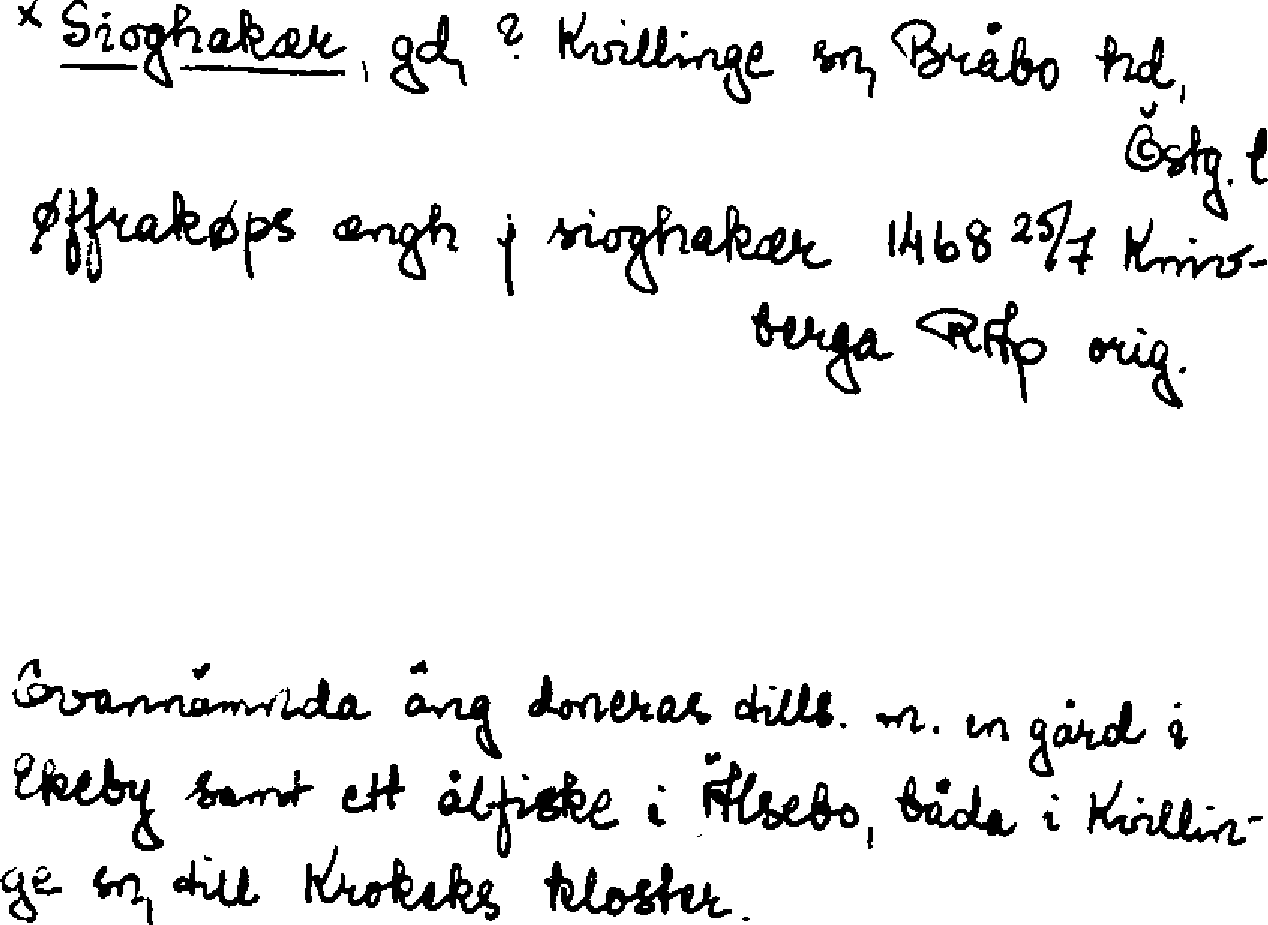 × Sioghakær, gd, ? Kvillinge sn, Bråbo hd,
Östg. l
Øffrakøps ængh j sioghakær 1468 25/7 Kniv-
berga RAp orig.
Ovannämnda äng doneras tills. m. en gård i
Ekeby samt ett ålfiske i Älsebo, båda i Kvillin-
ge sn, till Krokeks kloster.